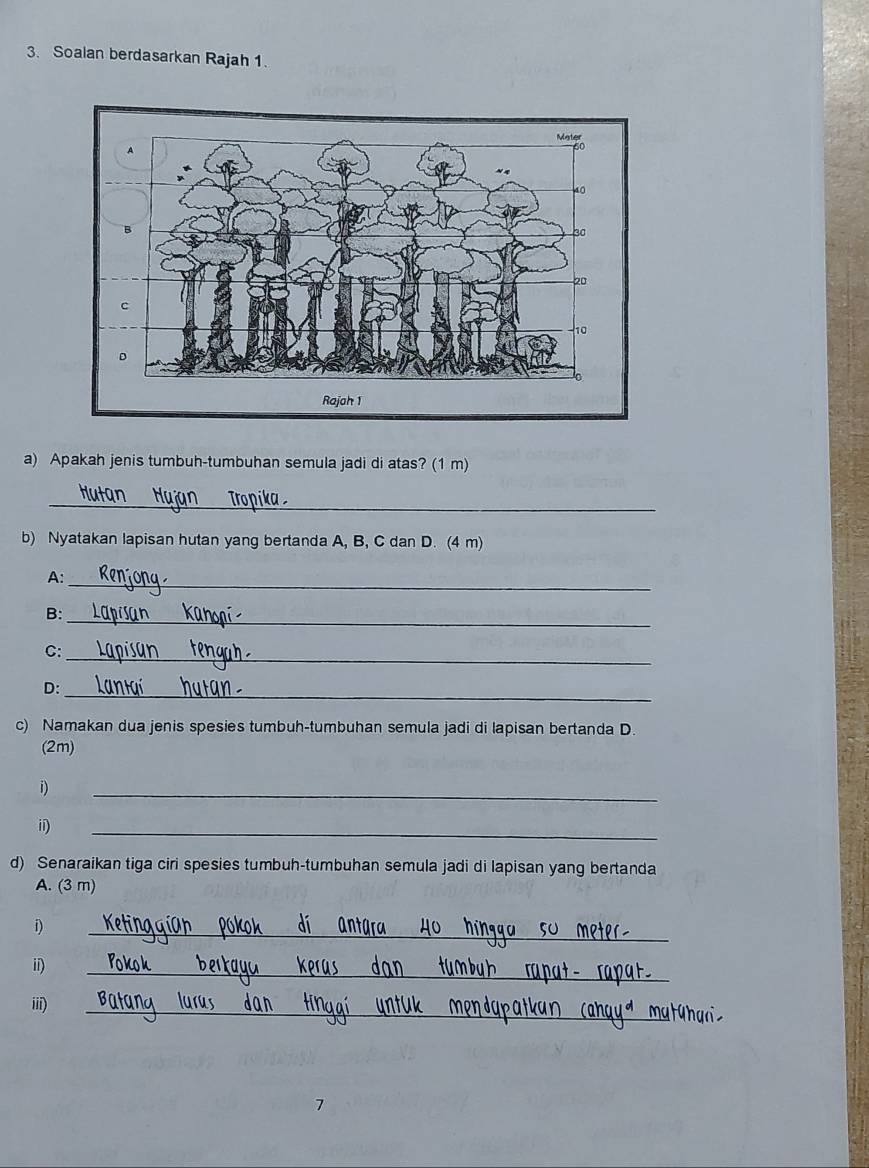 3. Soalan berdasarkan Rajah 1.
Meter
A
50
40
B
30
20
C
10
D
0
Rajah 1
a) Apakah jenis tumbuh-tumbuhan semula jadi di atas? (1 m)
Hutan Hujan Tropika.
b) Nyatakan lapisan hutan yang bertanda A, B, C dan D. (4 m)
A: Renjong.
B: Lapisan Kanopi.
C: Lapisan tengah.
D: Lantai hutan.
c) Namakan dua jenis spesies tumbuh-tumbuhan semula jadi di lapisan bertanda D.
(2m)
i)
ii)
d) Senaraikan tiga ciri spesies tumbuh-tumbuhan semula jadi di lapisan yang bertanda
A. (3 m)
i) Ketinggian pokok di antara 40 hingga 50 meter.
ii) Pokok berkayu keras dan tumbuh rapat-rapat.
iii) Batang lurus dan tinggi untuk mendapatkan cahaya matahari.
7